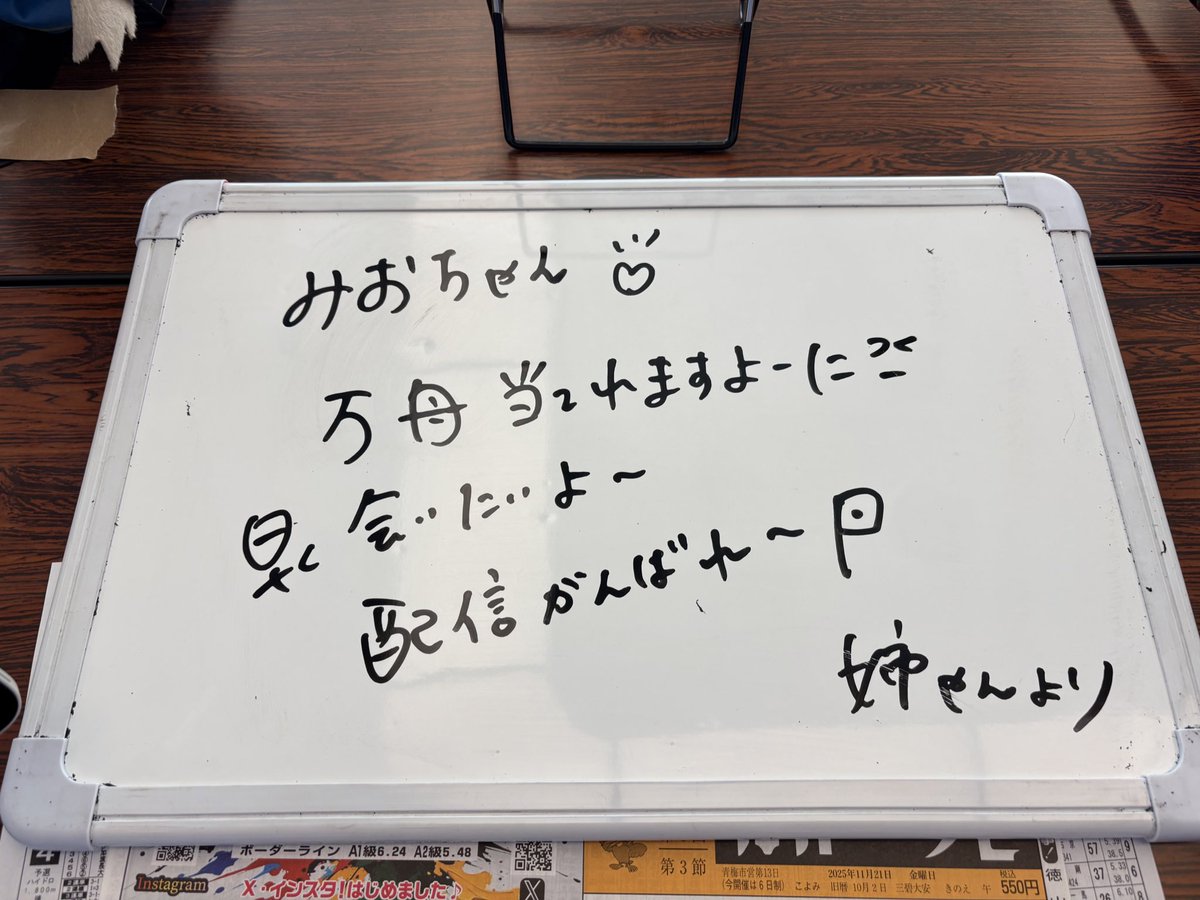 みおちゃん
万舟 当たれますよーに
早く 会いたいよ〜
配信がんばれ〜
姉さんより
ボーダーライン A1級6.24 A2級5.48
Instagram
X・インスタ!はじめました♪
4
予選
1,800m
第3節
青梅市営第13日
(今開催は6日制)
こよみ
2025年11月21日 金曜日
旧暦 10月2日 三碧大安 きのえ 午
税込
550円
徳